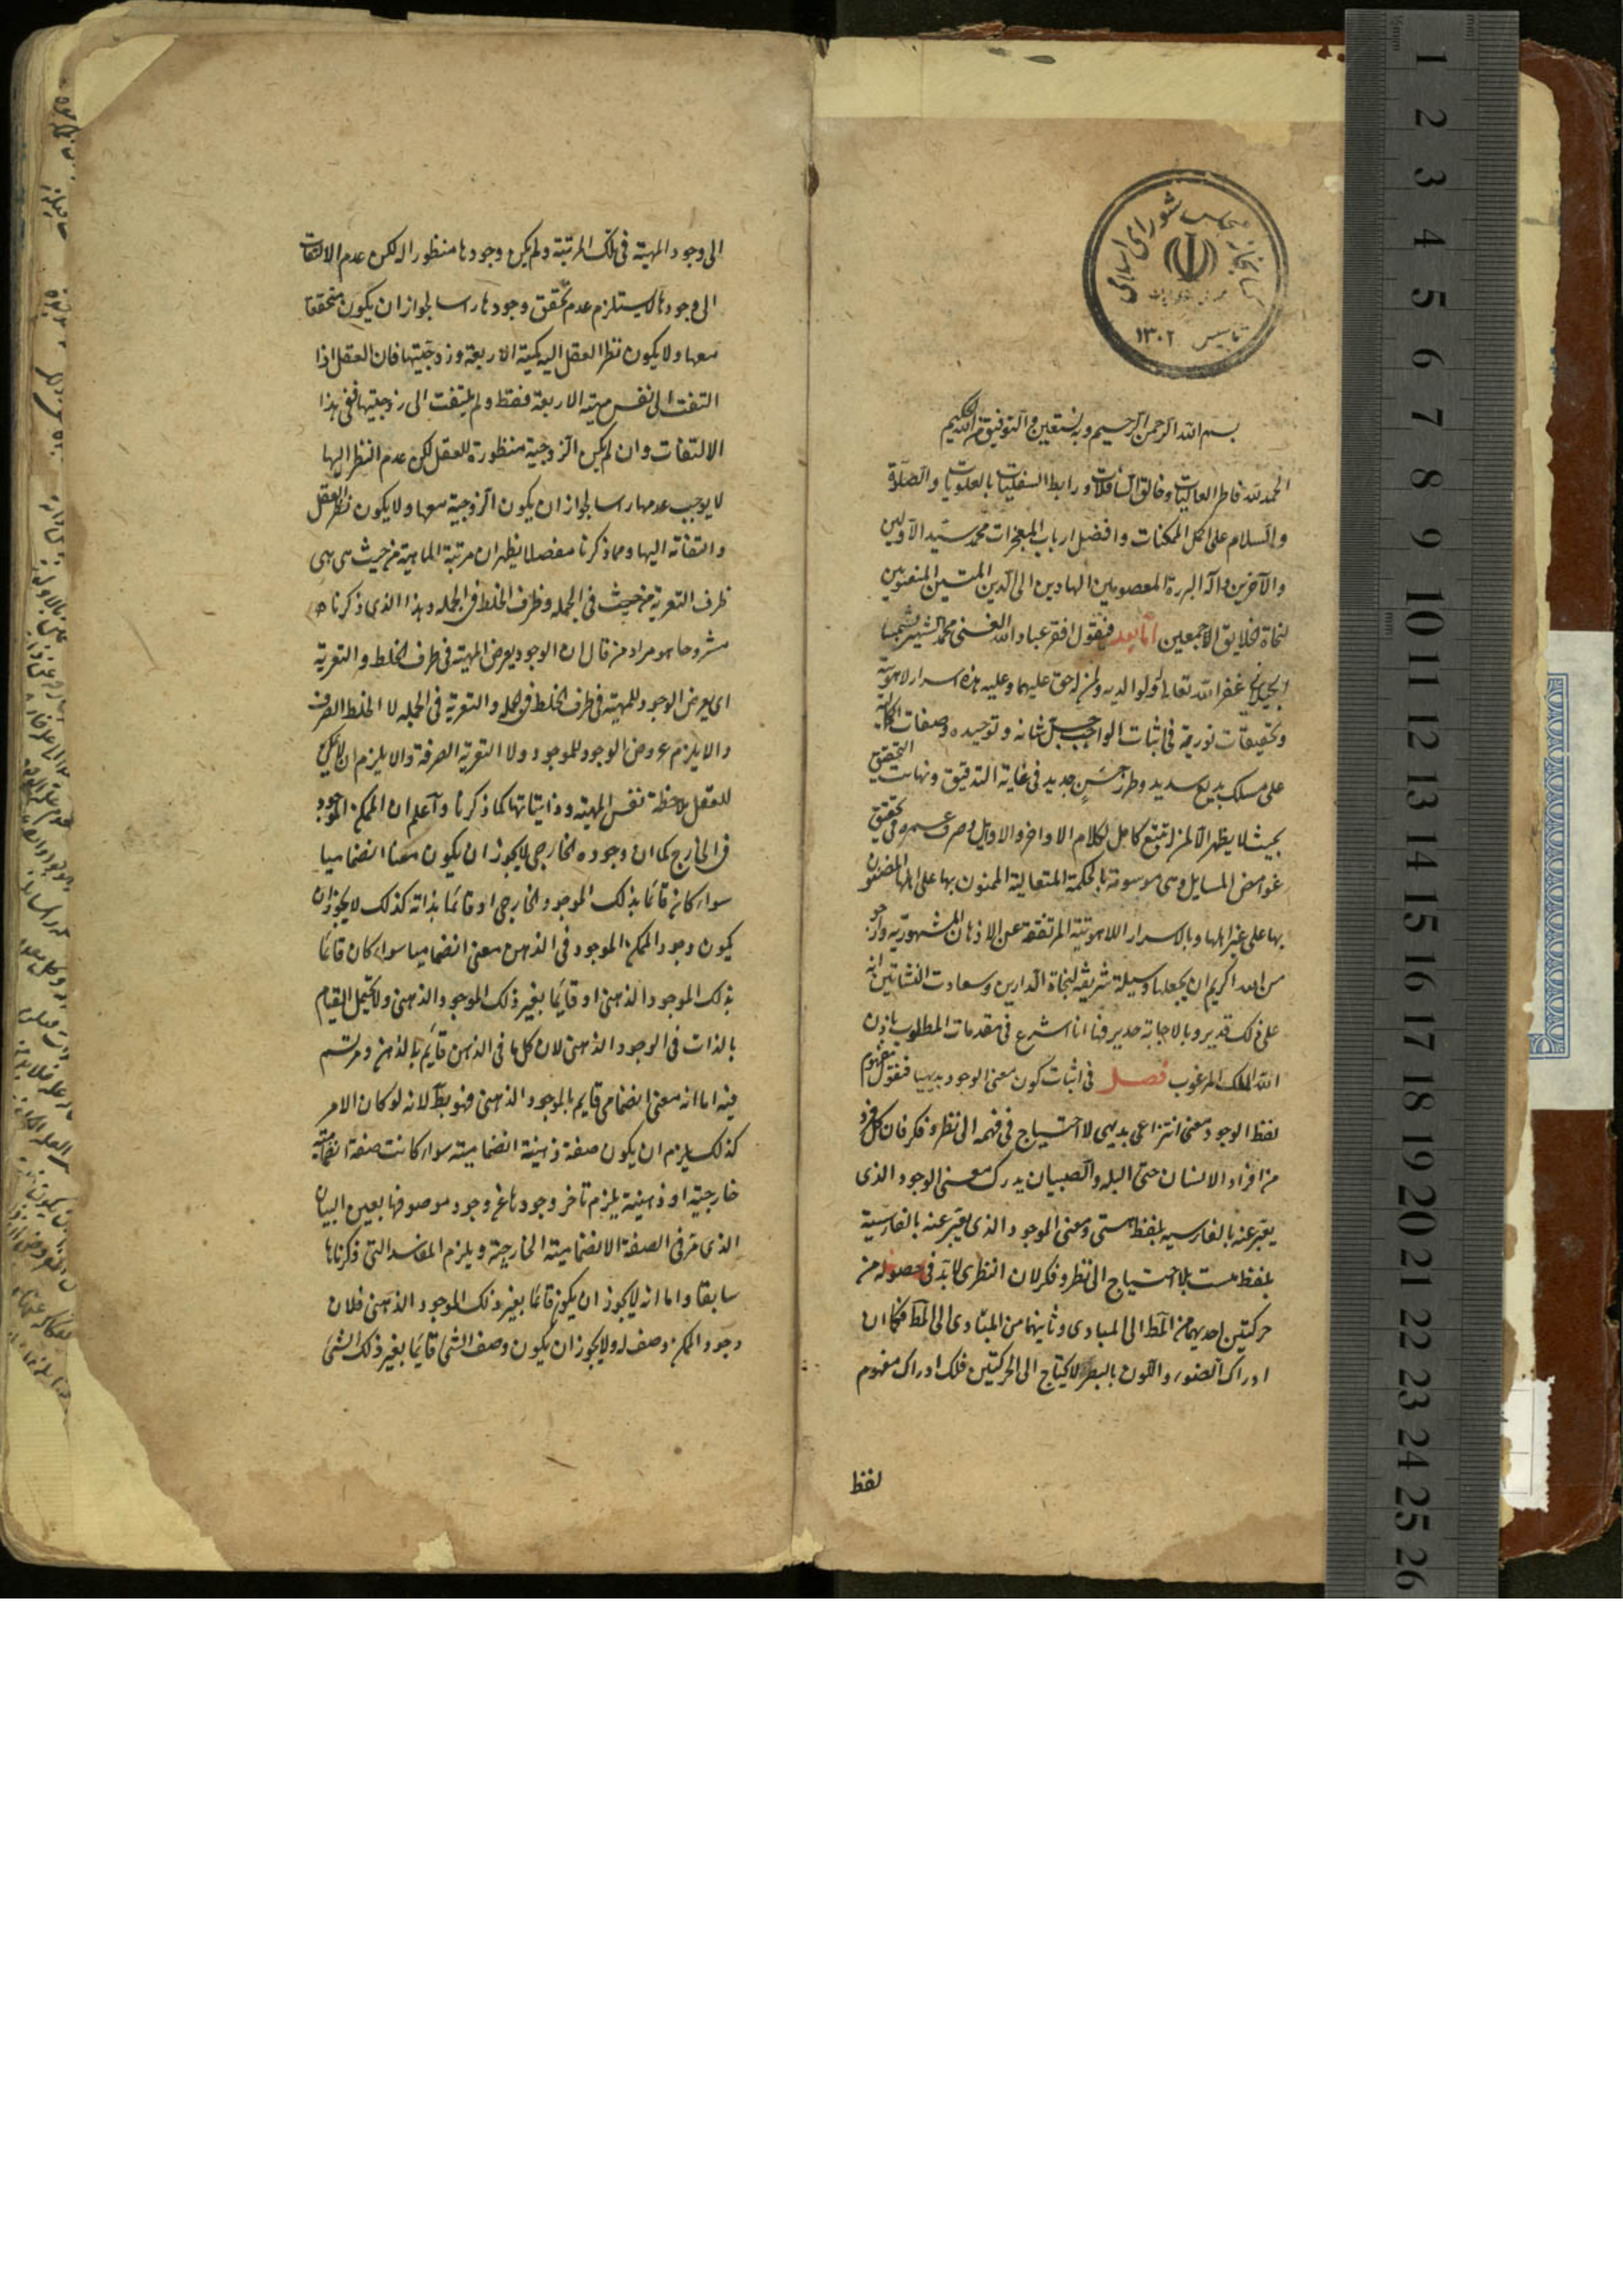 کتابخانه مجلس شورای اسلامی
تاسیس ۱۳۰۲
بسم الله الرحمن الرحیم وبه نستعین والتوفیق من الله الحکیم
الحمد لله فاطر العالیات وخالق السافلات ورابط السفلیات بالعلویات والصلوة
والسلام علی اکمل الممکنات وافضل ارباب المعجزات محمد سید الاولین
والآخرین وآله البررة المعصومین الهادین الی الدین المتین المنصوبین
لنجاة الخلایق الاجمعین اما بعد فیقول افقر عباد الله الغنی محمد الشهیر بشمسا
الجیلانی غفر الله تعالی له ولوالدیه ولمن له حق علیهما وعلیه هذه اسرار لاهوتیة
وتحقیقات نوریة فی اثبات الواجب جل شانه وتوحیده وصفات الکمالیة
علی مسلک بدیع سدید وطرز حسن جدید فی غایة التدقیق ونهایت التحقیق
بحیث لا یظهر الا لمن له تتبع کامل لکلام الاواخر والاوایل وصرف عمره فی تحقیق
غوامض المسایل وهی موسومة بالحکمة المتعالیة الممنون بها علی اهلها المضنون
بها علی غیر اهلها وبالاسرار اللاهوتیة المرتفعة عن الاذهان المشهوریة وارجو
من الله الکریم ان یجعلها وسیلة شریفة لنجاة الدارین وسعادت النشاتین انه
علی ذلک قدیر وبالاجابة جدیر فها انا اشرع فی مقدمات المطلوب باذن
الله الملک المرغوب فصل فی اثبات کون معنی الوجود بدیهیا فنقول مفهوم
لفظ الوجود معنی انتزاعی بدیهی لا احتیاج فی فهمه الی نظر وفکر فان کل فرد
من افراد الانسان حتی البله والصبیان یدرک معنی الوجود الذی
یعبر عنه بالفارسیه بلفظ هستی ومعنی الموجود الذی یعبر عنه بالفارسیة
بلفظ هست بلا احتیاج الی نظر وفکر لان النظری لابد فی حصوله من
حرکتین احدیهما من المط الی المبادی وثانیهما من المبادی الی المط فکما ان
ادراک الضوء واللون بالبصر لا یحتاج الی الحرکتین فلک ادراک مفهوم
لفظ
الی وجود المهیة فی تلک المرتبة ولم یکن وجودها منظورا له لکن عدم الالتفات
الی وجودها لا یستلزم عدم تحقق وجودها راسا لجواز ان یکون متحققا
معها ولا یکون نظر العقل الیه کمهیة الاربعة وزوجیتها فان العقل اذا
التفت الی نفس مهیة الاربعة فقط ولم یلتفت الی زوجیتها ففی هذا
الالتفات وان لم یکن الزوجیة منظورة للعقل لکن عدم النظر الیها
لا یوجب عدمها راسا لجواز ان یکون الزوجیة معها ولا یکون نظر العقل
والتفاته الیها ومما ذکرنا مفصلا یظهر ان مرتبة الماهیة من حیث هی هی
ظرف التعریة من حیث فی الجمله وظرف الخلط فی الجمله وهذا الذی ذکرناه
مشروحا هو مراد من قال ان الوجود یعرض المهیة فی ظرف الخلط والتعریة
ای یعرض الوجود للمهیة فی ظرف الخلط فی الجملة والتعریة فی الجمله لا الخلط الصرف
والا یلزم عروض الوجود للموجود ولا التعریة الصرفة والا یلزم ان لا یمکن
للعقل ملاحظة نفس المهیة وذاتیاتها کما ذکرنا واعلم ان الممکن الموجود
فی الخارج کما ان وجوده الخارجی لا یجوز ان یکون معنا انضمامیا
سواء کان قائما بذلک الموجود الخارجی او قائما بذاته کذلک لا یجوز ان
یکون وجود الممکن الموجود فی الذهن معنی انضمامیا سواء کان قائما
بذلک الموجود الذهنی او قایما بغیر ذلک الموجود الذهنی ولا یحتمل القیام
بالذات فی الوجود الذهنی لان کل ما فی الذهن قایم بالذهن ومرتسم
فیه اما انه معنی انضمامی قایم بالموجود الذهنی فهو بط لانه لو کان الامر
کذلک یلزم ان یکون صفة ذهنیة انضمامیته سواء کانت صفة انضمامیة
خارجیة او ذهنیة یلزم تاخر وجودها عن وجود موصوفها بعین البیان
الذی مر فی الصفة الانضمامیة الخارجیة ویلزم المفاسد التی ذکرناها
سابقا واما انه لا یجوز ان یکون قائما بغیر ذلک الموجود الذهنی فلان
وجود الممکن وصف له ولا یجوز ان یکون وصف الشئ قایما بغیر ذلک الشئ